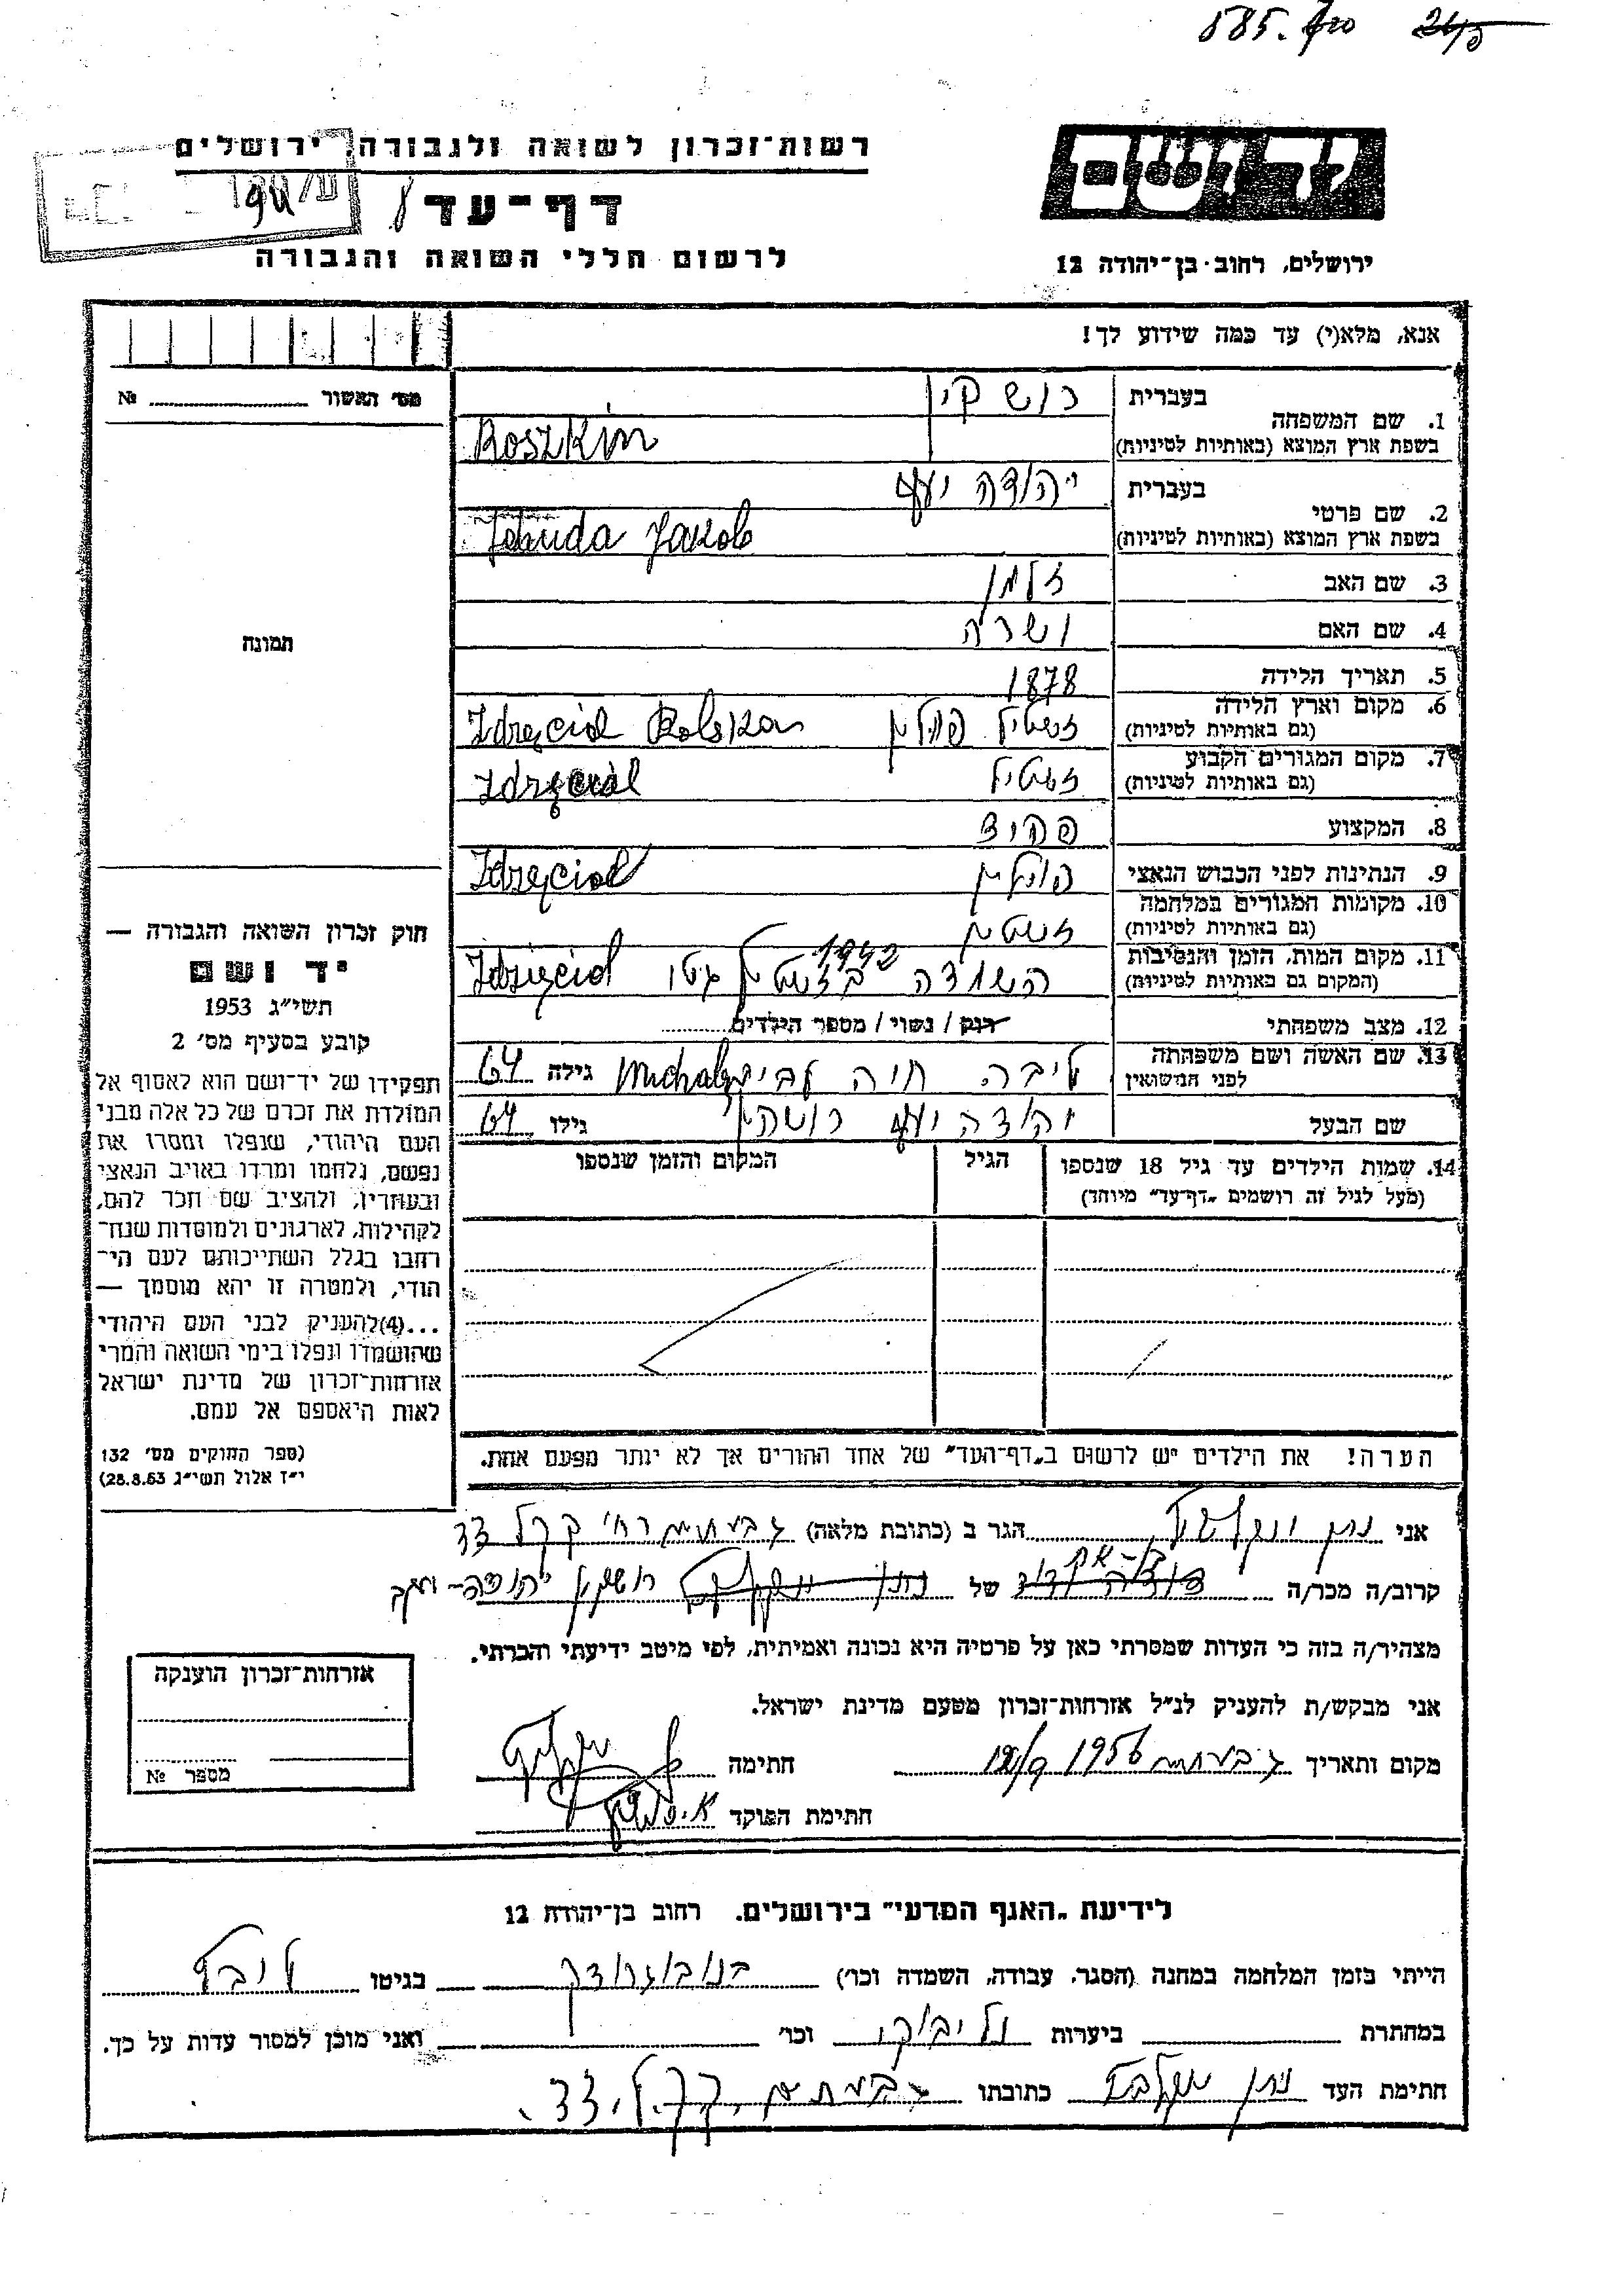 585.
רשות־זכרון לשואה ולגבורה, ירושלים
דף־עד
לרשום חללי השואה והגבורה
ירושלים, רחוב בן־יהודה 12
אנא, מלא(י) עד כמה שידוע לך!
מס׳ האשור № 
1. שם המשפחה
בעברית רושקין
בשפת ארץ המוצא (באותיות לטיניות) Roszkin
2. שם פרטי
בעברית יהודה יעקב
בשפת ארץ המוצא (באותיות לטיניות) Jehuda Jakob
3. שם האב זלמן
4. שם האם ושרה
5. תאריך הלידה 1878
6. מקום וארץ הלידה
(גם באותיות לטיניות) זשטיל פולין Zdzięciol Polska
7. מקום המגורים הקבוע
(גם באותיות לטיניות) זשטיל Zdzięciol
8. המקצוע פקיד
9. הנתינות לפני הכבוש הנאצי פולין Zdzięciol
10. מקומות המגורים במלחמה
(גם באותיות לטיניות)
11. מקום המות, הזמן והנסיבות 1942
(המקום גם באותיות לטיניות) גטו Zdzięciol
12. מצב משפחתי רוק / נשוי / מספר הילדים
13. שם האשה ושם משפחתה
לפני הנישואין ליבה חיה גילה 64
שם הבעל יהודה יעקב רושקין גילו 64
14. שמות הילדים עד גיל 18 שנספו
(מעל לגיל זה רושמים „דף־עד״ מיוחד)
הגיל
המקום והזמן שנספו
הערה! את הילדים יש לרשום ב„דף־העד״ של אחד ההורים אך לא יותר מפעם אחת.
תמונה
חוק זכרון השואה והגבורה —
יד ושם
תשי״ג 1953
קובע בסעיף מס׳ 2
תפקידו של יד־ושם הוא לאסוף אל
המולדת את זכרם של כל אלה מבני
העם היהודי, שנפלו ומסרו את
נפשם, נלחמו ומרדו באויב הנאצי
ובעוזריו, ולהציב שם וזכר להם,
לקהילות, לארגונים ולמוסדות שנח־
רחבו בגלל השתייכותם לעם הי־
הודי, ולמטרה זו יהא מוסמך —
...(4)להעניק לבני העם היהודי
שהושמדו ונפלו בימי השואה והמרי
אזרחות־זכרון של מדינת ישראל
לאות היאספם אל עמם.
(ספר החוקים מס׳ 132
י״ז אלול תשי״ג 28.8.53)
אני נתן הגר ב (כתובת מלאה) גבעתיים רח׳ קק״ל 33
קרוב/ה מכר/ה של רושקין יהודה־יעקב
מצהיר/ה בזה כי העדות שמסרתי כאן על פרטיה היא נכונה ואמיתית, לפי מיטב ידיעתי והכרתי.
אני מבקש/ת להעניק לנ״ל אזרחות־זכרון מטעם מדינת ישראל.
מקום ותאריך גבעתיים 1956 חתימה
חתימת הפוקד
אזרחות־זכרון הוענקה
מספר №
לידיעת „האגף המדעי״ בירושלים. רחוב בן־יהודה 12
הייתי בזמן המלחמה במחנה (הסגר, עבודה, השמדה וכו׳) בנובוגרודק בגיטו
במחתרת ביערות וכו׳ ואני מוכן למסור עדות על כך.
חתימת העד נתן כתובתו גבעתיים, קק״ל 33.